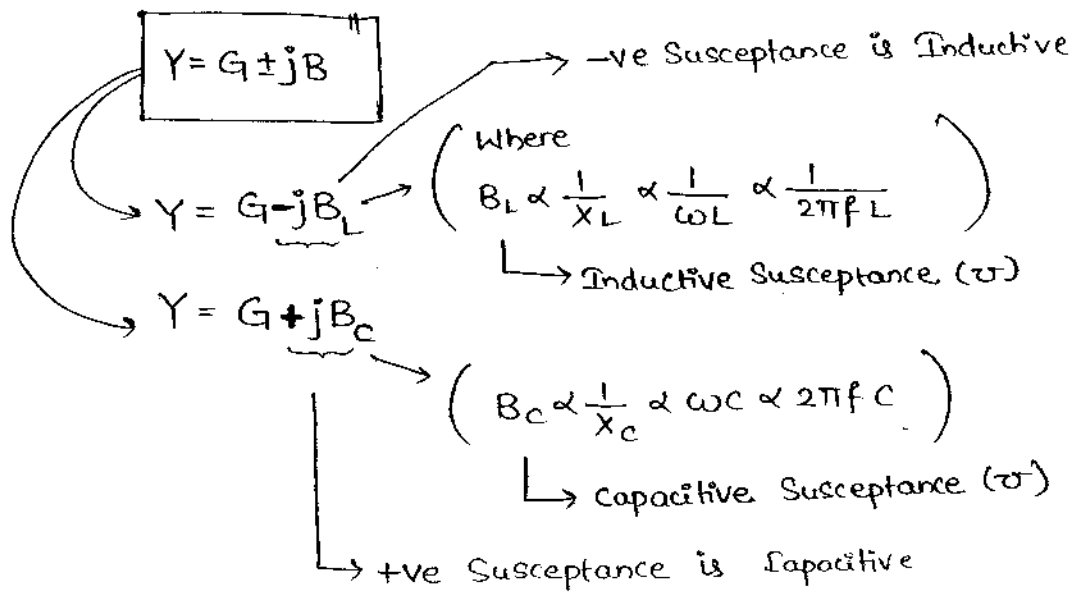 Y = G ± jB
→ -ve Susceptance is Inductive
Y = G - jB_L → ( Where
B_L ∝ 1/X_L ∝ 1/ωL ∝ 1/2πfL )
→ Inductive Susceptance (℧)
Y = G + jB_C
→ ( B_C ∝ 1/X_C ∝ ωC ∝ 2πfC )
→ Capacitive Susceptance (℧)
→ +ve Susceptance is Capacitive